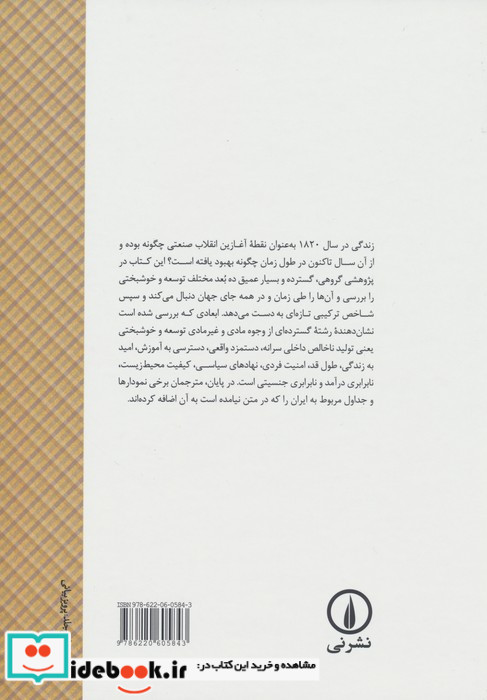 زندگی در سال ۱۸۲۰ به‌عنوان نقطهٔ آغازین انقلاب صنعتی چگونه بوده و
از آن سال تاکنون در طول زمان چگونه بهبود یافته است؟ این کتاب در
پژوهشی گروهی، گسترده و بسیار عمیق ده بُعد مختلف توسعه و خوشبختی
را بررسی و آن‌ها را طی زمان و در همه جای جهان دنبال می‌کند و سپس
شاخص ترکیبی تازه‌ای به دست می‌دهد. ابعادی که بررسی شده است
نشان‌دهندهٔ رشتهٔ گسترده‌ای از وجوه مادی و غیرمادی توسعه و خوشبختی
یعنی تولید ناخالص داخلی سرانه، دستمزد واقعی، دسترسی به آموزش، امید
به زندگی، طول قد، امنیت فردی، نهادهای سیاسی، کیفیت محیط‌زیست،
نابرابری درآمد و نابرابری جنسیتی است. در پایان، مترجمان برخی نمودارها
و جداول مربوط به ایران را که در متن نیامده است به آن اضافه کرده‌اند.
جلد: پرویز بیانی
ISBN 978-622-06-0584-3
9 786220 605843
نشرنی
مشاهده و خرید این کتاب در:
idebook.ir